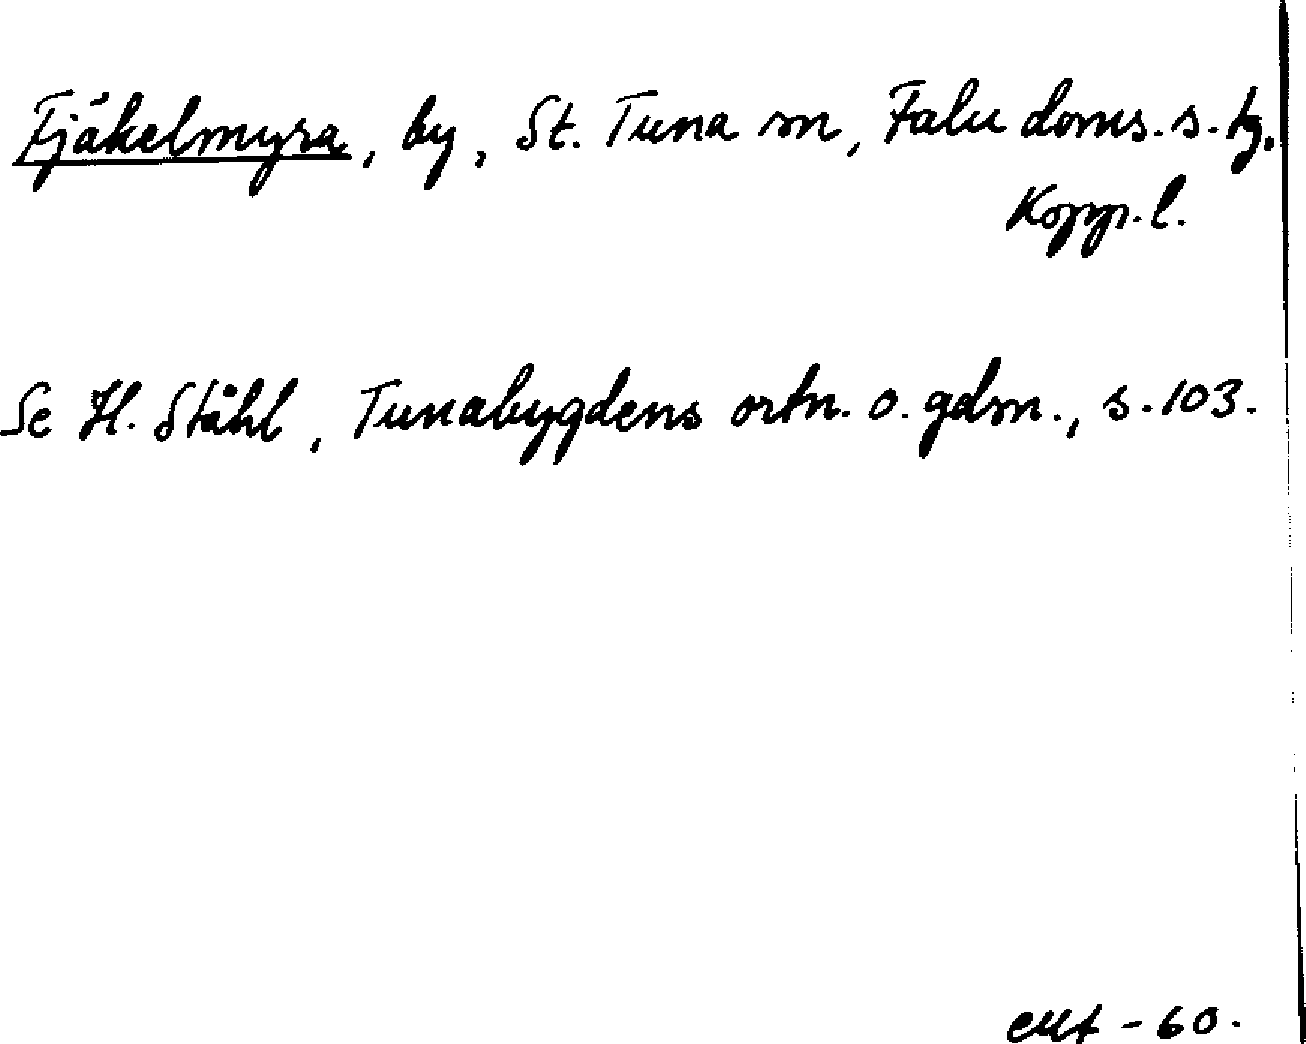 Fjäkelmyra, by, St. Tuna sn, Falu doms. s. tg.
Kopp. l.
Se H. Ståhl, Tunabygdens ortn. o. gdsn., s. 103.
- 60.